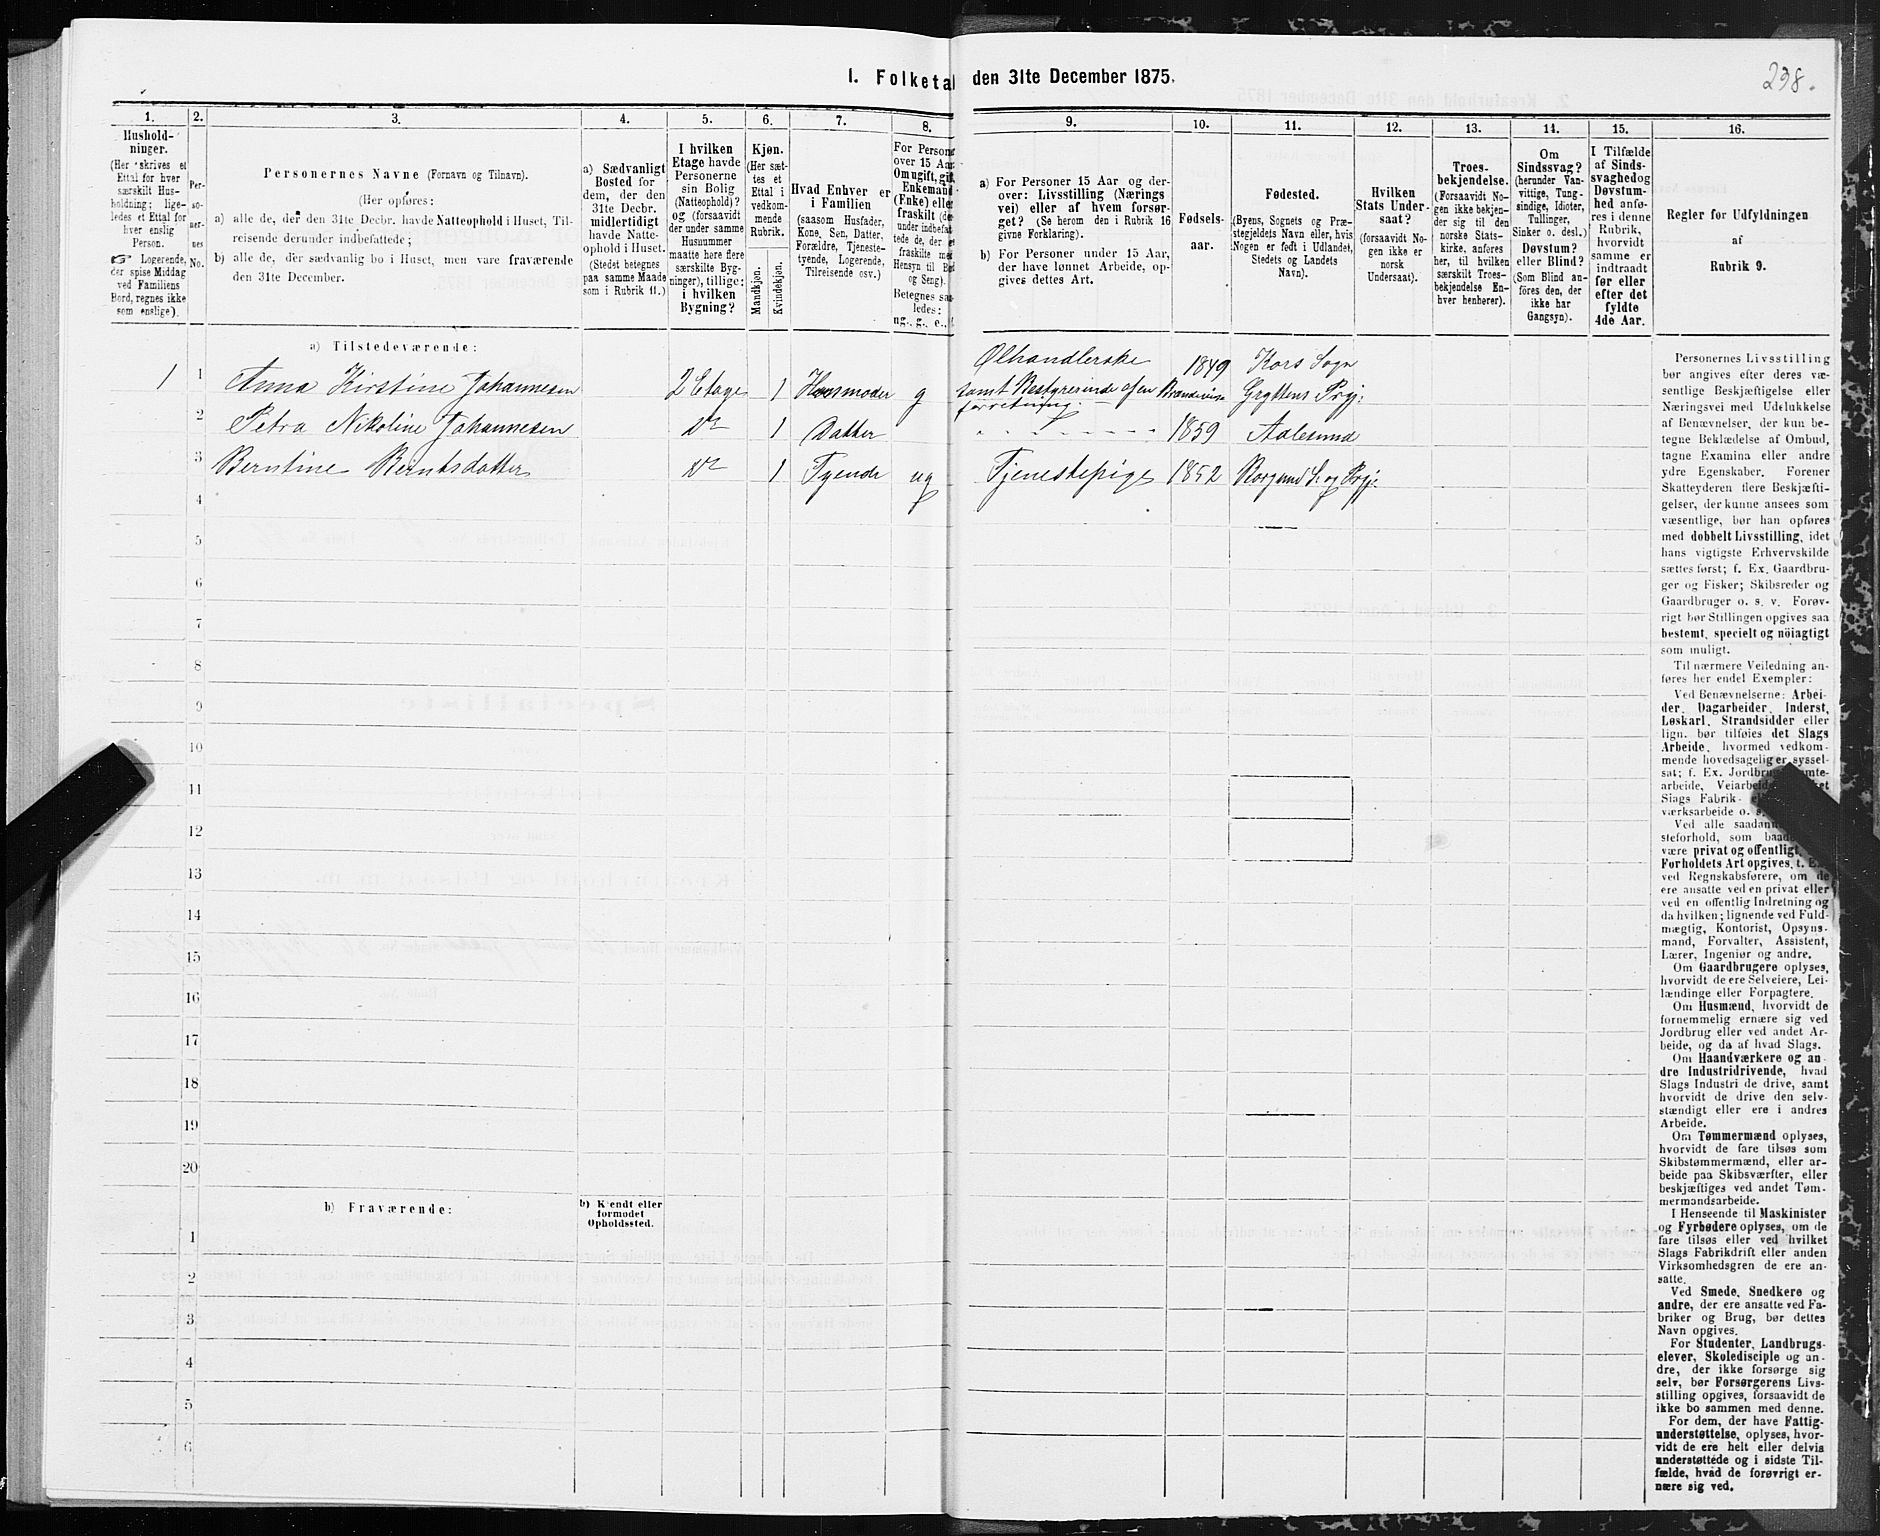 I. Folketal den 31te December 1875.
298.
1.
2.
3.
4.
5.
6.
7.
8.
9.
10.
11.
12.
13.
14.
15.
16.
Hushold-
ninger.
(Her skrives et
Ettal for hver
særskilt Hus-
holdning; lige-
ledes et Ettal for
hver enslig
Person.
☞ Logerende,
der spise Middag
ved Familiens
Bord, regnes ikke
som enslige).
Per-
so-
ner-
nes
No.
Personernes Navne (Fornavn og Tilnavn).
(Her opføres:
a) alle de, der den 31te Decbr. havde Natteophold i Huset, Til-
reisende derunder indbefattede;
b) alle de, der sædvanlig bo i Huset, men vare fraværende
den 31te December.
a) Sædvanligt
Bosted for
dem, der den
31te Decbr.
midlertidigt
havde Natte-
ophold i Huset.
(Stedet betegnes
paa samme Maade
som i Rubrik 11.)
I hvilken
Etage havde
Personerne
sin Bolig
(Natteophold)?
og (forsaavidt
der under samme
Husnummer
maatte høre flere
særskilte Byg-
ninger), tillige:
i hvilken
Bygning?
Kjøn.
(Her sæt-
tes et
Ettal i
vedkom-
mende
Rubrik.
Mandkjøn.
Kvindekjøn.
Hvad Enhver er
i Familien
(saasom Husfader,
Kone, Søn, Datter,
Forældre, Tjeneste-
tyende, Logerende,
Tilreisende osv.)
For Person
over 15 Aar
Om ugift, gift
Enkemand
(Enke) eller
fraskilt (de
under indbefat
tede de, der e
fraskilte me
Hensyn til B
og Seng).
Betegnes saa
ledes:
ug., g., e.,
a) For Personer 15 Aar og der-
over: Livsstilling (Nærings
vei) eller af hvem forsør-
get? (Se herom den i Rubrik 16
givne Forklaring).
b) For Personer under 15 Aar,
der have lønnet Arbeide, op-
gives dettes Art.
Fødsels-
aar.
Fødested.
(Byens, Sognets og Præ-
stegjeldets Navn eller, hvis
Nogen er født i Udlandet,
Stedets og Landets
Navn).
Hvilken
Stats Under-
saat?
(forsaavidt No-
gen ikke er
norsk
Undersaat).
Troes-
bekjendelse.
(Forsaavidt No-
gen ikke bekjen-
der sig til den
norske Stats-
kirke, anføres
her, til hvilken
særskilt Troes-
bekjendelse En-
hver henhører).
Om
Sindssvag?
(herunder Van-
vittige, Tung-
sindige, Idioter,
Tullinger,
Sinker o. desl.)
Døvstum?
eller Blind?
(Som Blind an-
føres den, der
ikke har
Gangsyn).
I Tilfælde
af Sinds-
svaghed og
Døvstum-
hed anfø-
res i denne
Rubrik,
hvorvidt
samme er
indtraadt
før eller
efter det
fyldte
4de Aar.
Regler for Udfyldningen
af
Rubrik 9.
a) Tilstedeværende:
1 1 Anna Kirstine Johannesen 2 Etage 1 Husmoder g Ølhandlerske 1849 Kors Sogn
samt Bestyrerinde af en Brændevins Gryttens Prgj:
forretning
2 Petra Nikoline Johannesen Do 1 Datter - - - - - - 1859 Aalesund
3 Berntine Berntsdatter Do 1 Tyende ug Tjenestepige 1852 Borgund S. og Prgj:
4
5
6
7
8
9
10
11
12
13
14
15
16
17
18
19
20
b) Fraværende:
b) Kjendt eller
formodet
Opholdssted.
1
2
3
4
5
6
Personernes Livsstilling
bør angives efter deres væ-
sentlige Beskjæftigelse eller
Næringsvei med Udelukkelse
af Benævnelser, der kun be-
tegne Beklædelse af Ombud,
tagne Examina eller andre
ydre Egenskaber. Forener
Skatteyderen flere Beskjæfti-
gelser, der kunne ansees som
væsentlige, bør han opføres
med dobbelt Livsstilling, idet
hans vigtigste Erhvervskilde
sættes først; f. Ex. Gaardbru-
ger og Fisker; Skibsreder og
Gaardbruger o. s. v. Forøv-
rigt bør Stillingen opgives saa
bestemt, specielt og nöiagtigt
som muligt.
Til nærmere Veiledning an-
føres her endel Exempler:
Ved Benævnelserne: Arbei-
der, Dagarbeider, Inderst,
Løskarl, Strandsidder eller
lign. bør tilføies det Slags
Arbeide, hvormed vedkom-
mende hovedsagelig er syssel-
sat; f. Ex. Jordbru
arbeide, Veiarbeide
Slags Fabrik-
værksarbeide o. s.
Ved alle saadan
steforhold, som baade
være privat og offentligt,
Forholdets Art opgives, t. Ex.
ved Regnskabsførere, om de
ere ansatte ved en privat eller
ved en offentlig Indretning og
da hvilken; lignende ved Fuld-
mægtig, Kontorist, Opsyns-
mand, Forvalter, Assistent,
Lærer, Ingeniør og andre.
Om Gaardbrugere oplyses,
hvorvidt de ere Selveiere, Lei-
lændinge eller Forpagtere.
Om Husmænd, hvorvidt de
fornemmelig ernære sig ved
Jordbrug eller ved andet Ar-
beide, og da af hvad Slags.
Om Haandværkere og an-
dre Industridrivende, hvad
Slags Industri de drive, samt
hvorvidt de drive den selv-
stændigt eller ere i andres
Arbeide.
Om Tømmermænd oplyses,
hvorvidt de fare tilsøs som
Skibstømmermænd, eller ar-
beide paa Skibsværfter, eller
beskjæftiges ved andet Tøm-
mermandsarbeide.
I Henseende til Maskinister
og Fyrbødere oplyses, om de
fare tilsøs eller ved hvilket
Slags Fabrikdrift eller anden
Virksomhedsgren de ere an-
satte.
Ved Smede, Snedkere og
andre, der ere ansatte ved Fa-
briker og Brug, bør dettes
Navn opgives.
For Studenter, Landbrugs-
elever, Skoledisciple og an-
dre, der ikke forsørge sig
selv, bør Forsørgerens Livs-
stilling opgives, forsaavidt de
ikke bo sammen med denne.
For dem, der have Fattig-
understøttelse, oplyses, hvor-
vidt de ere helt eller delvis
understøttede og i sidste Til-
fælde, hvad de forøvrigt er-
nære sig ved.